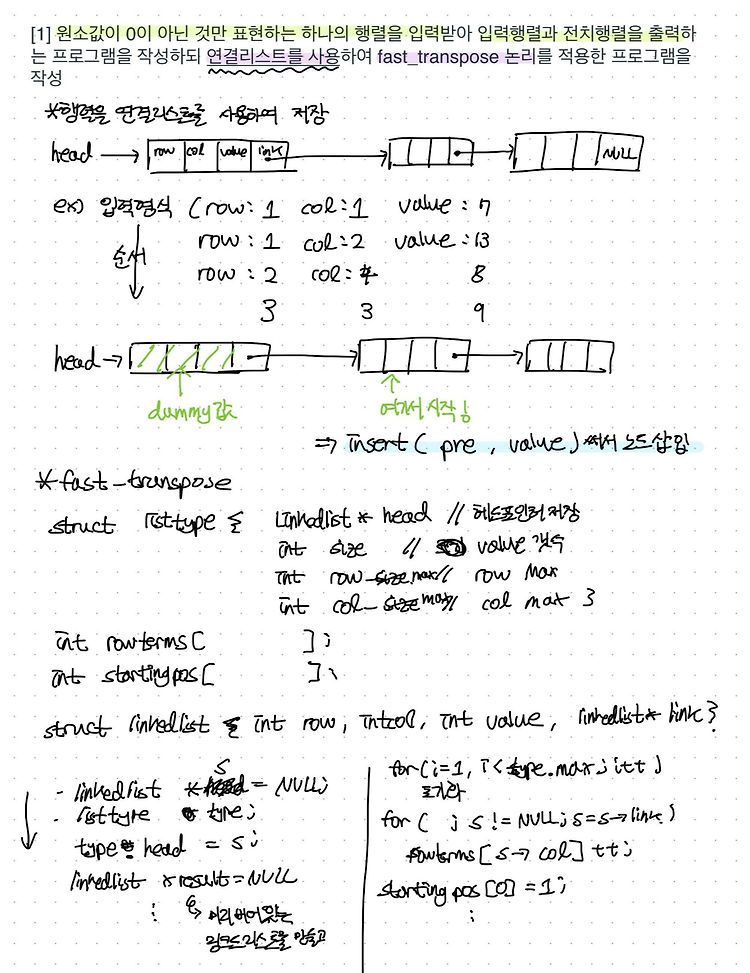 [1] 원소값이 0이 아닌 것만 표현하는 하나의 행렬을 입력받아 입력행렬과 전치행렬을 출력하
는 프로그램을 작성하되 연결리스트를 사용하여 fast_transpose 논리를 적용한 프로그램을
작성
*행렬을 연결리스트를 사용하여 저장
head → row col value link NULL
ex) 입력형식 (row: 1 col:1 value : 7
순서 row : 1 col:2 value :13
row : 2 col: 4 8
3 3 9
head →
dummy값 여기서 시작!
⇒ insert( pre , value) 써서 노드삽입
*fast-transpose
struct listtype { linkedlist* head // 헤드포인터저장
int size // value 갯수
int row_max// row max
int col_max// col max }
int rowterms[ ];
int startingpos[ ];
struct linkedlist { int row, int col, int value, linkedlist* link}
- linkedlist *s = NULL;
- listtype type;
type head = s;
linkedlist *result=NULL
⋮ ↳ 미리 비어있는
링크드리스트를 만들고
for(i=1, i<type.max; i++)
초기화
for( ; s != NULL; s=s→link)
rowterms[s→col]++;
startingpos[0]=1;
⋮